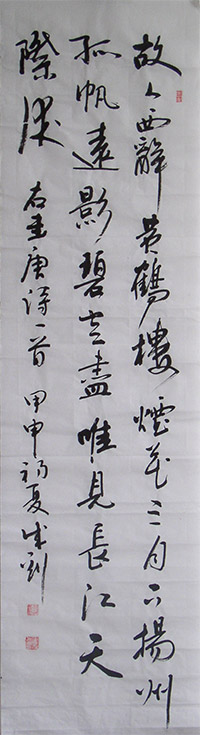 故人西辭黃鶴樓煙花三月下揚州
孤帆遠影碧空盡唯見長江天
際流 右書唐詩一首 甲申初夏